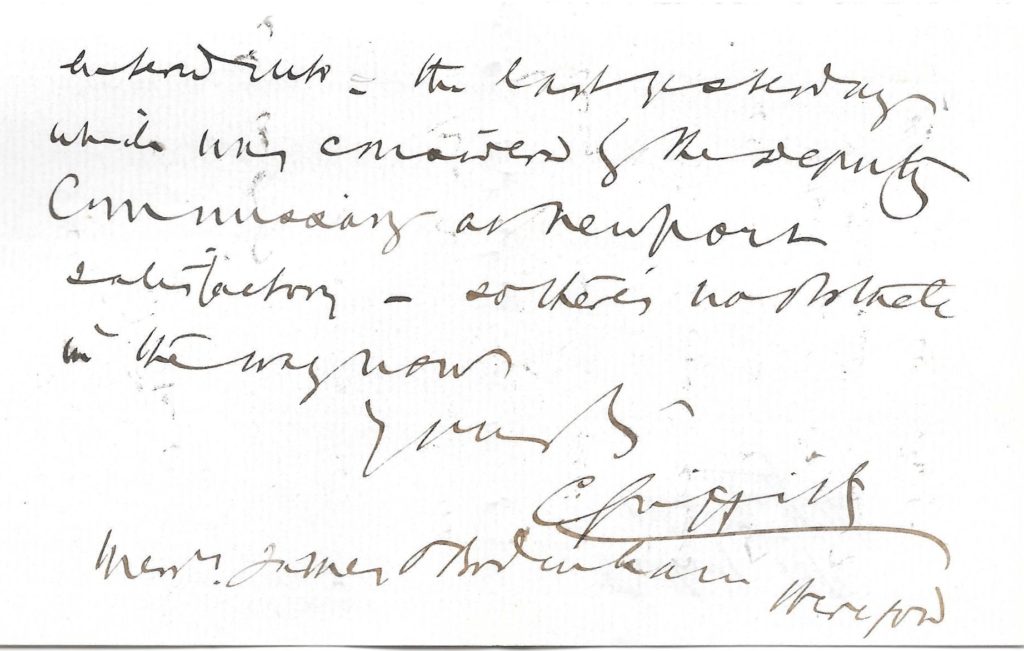 entered into – the last yesterday
which was considered by the deputy
Commissary at Newport
satisfactory – so there's no obstacle
in the way now
Yours
C Griffith
Messrs. James & Bodenham
Hereford